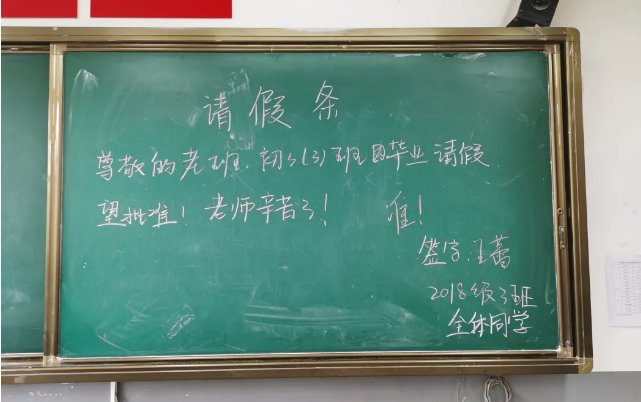 请假条
尊敬的老班.初3(3)班因毕业请假
望批准!老师辛苦了! 准!
签字.王蕾
2018级3班
全体同学